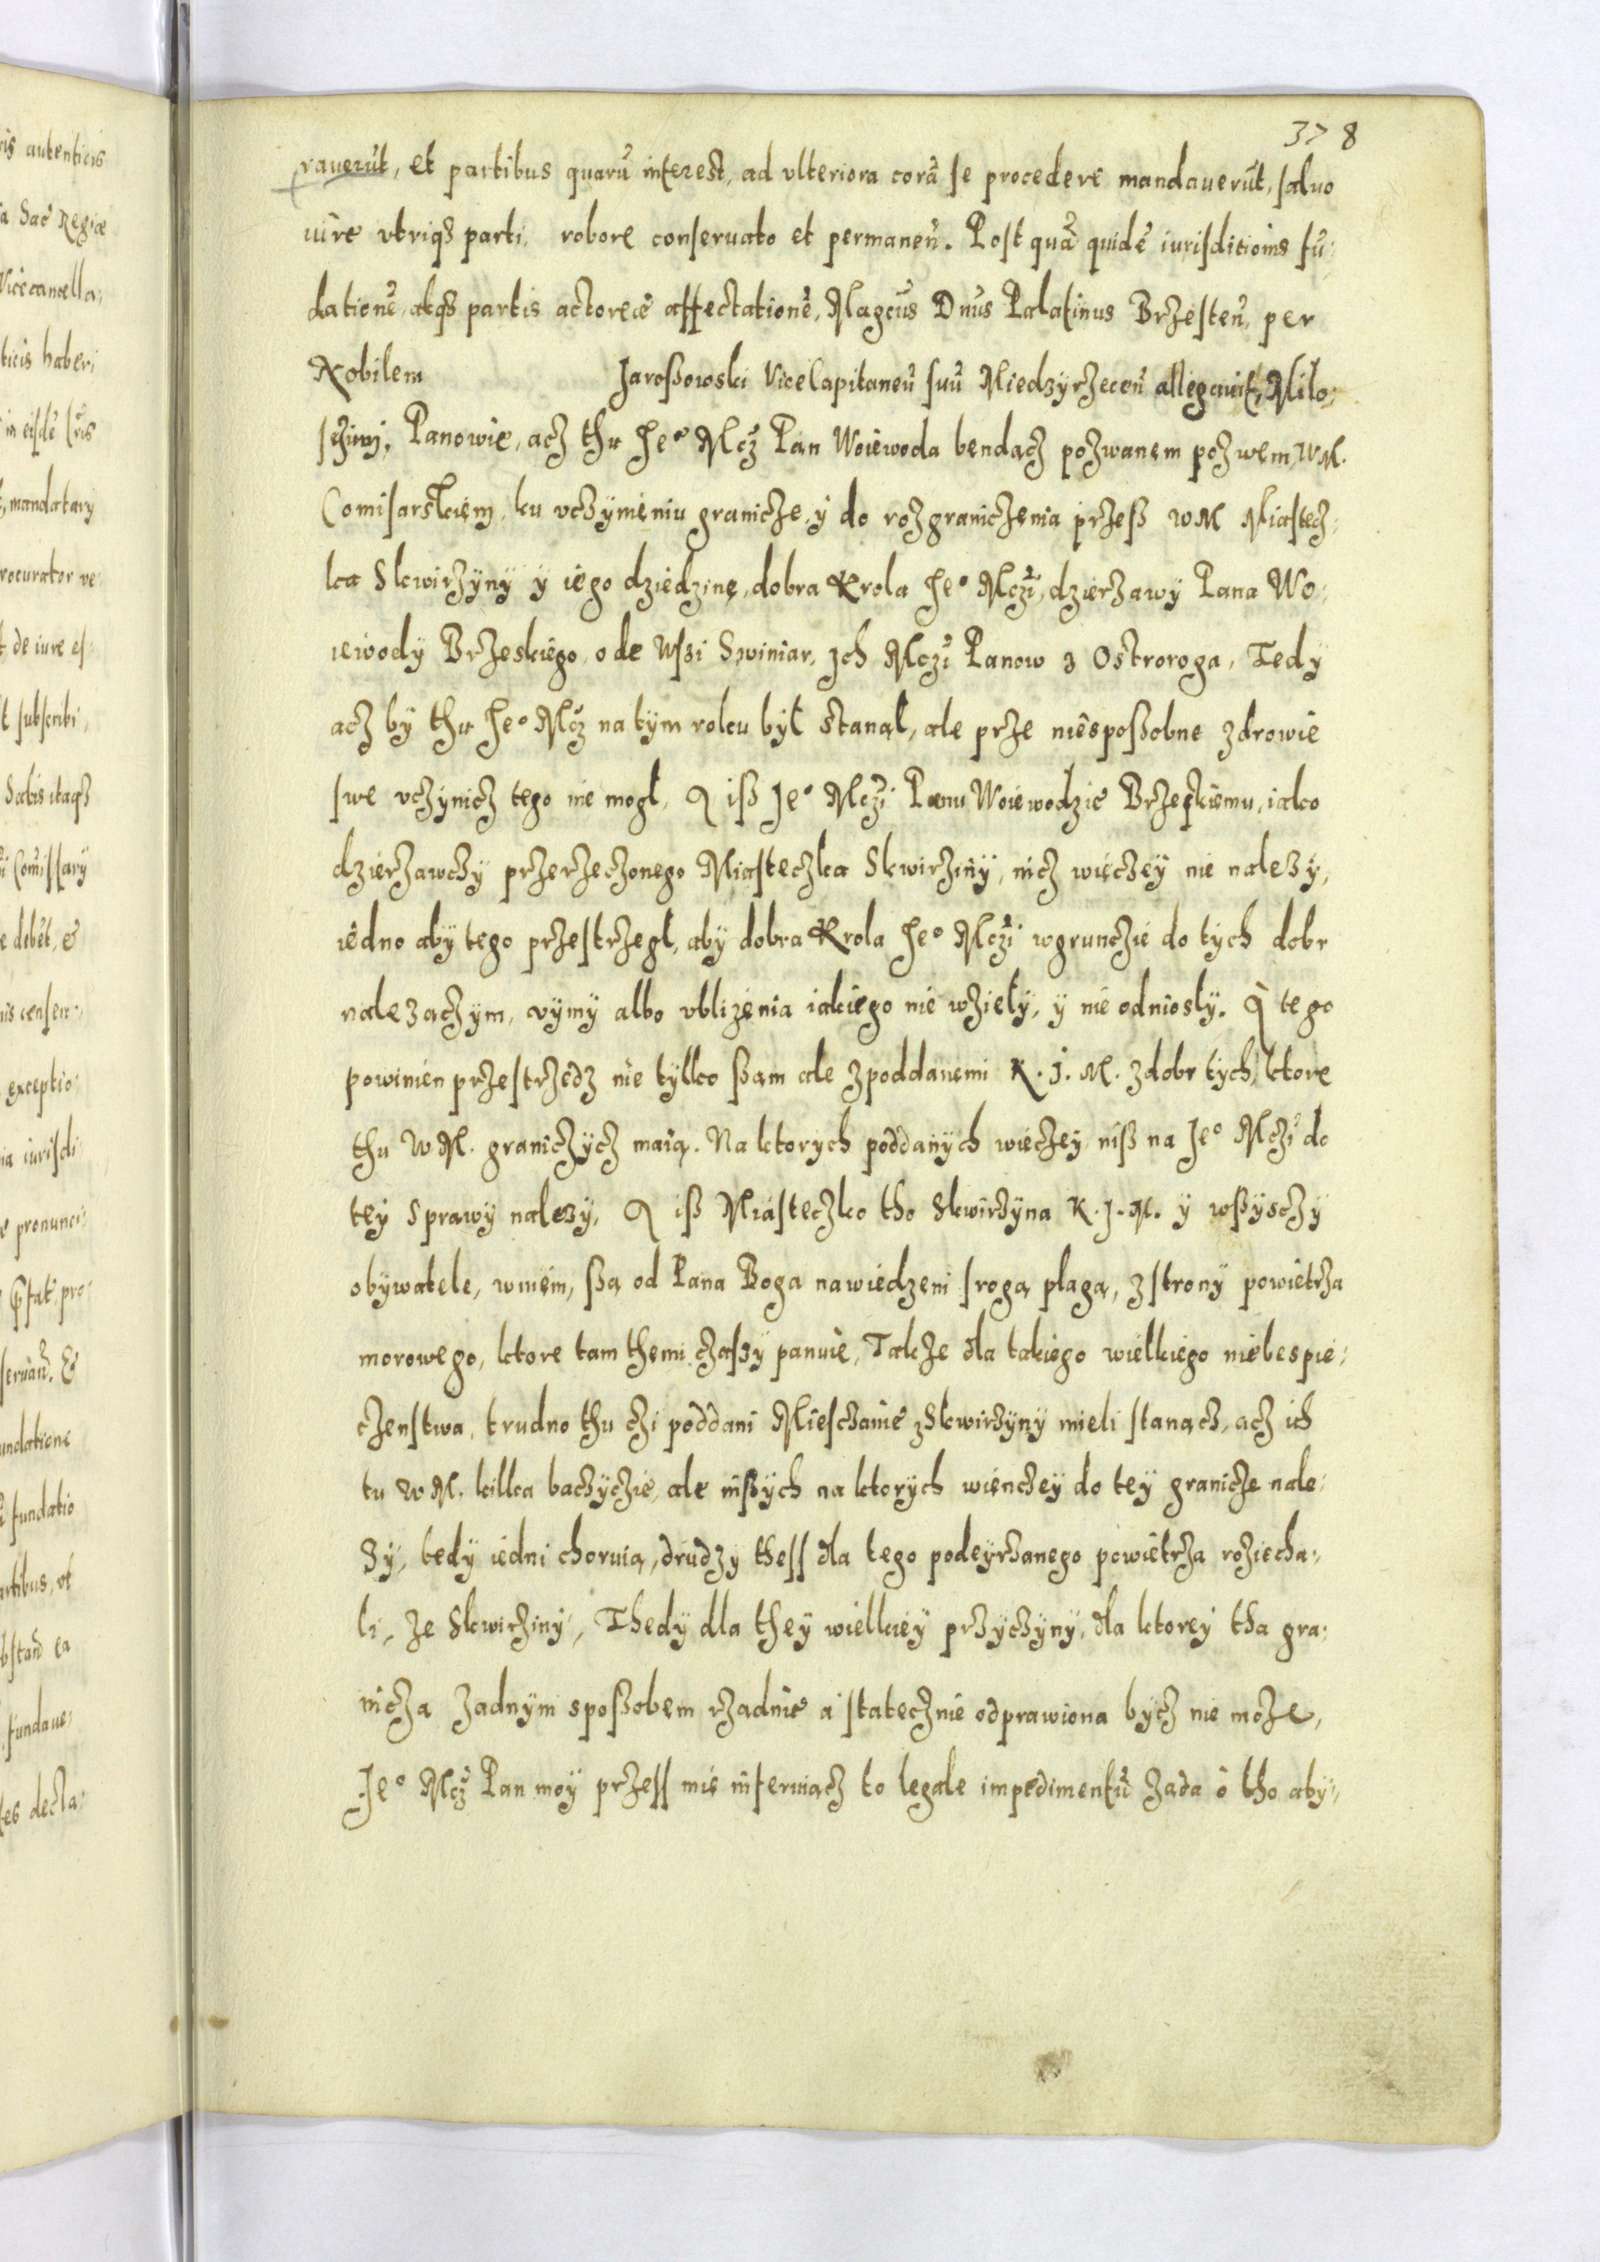 378
rauerūt, et partibus quarū interest, ad vlteriora corā se procedere mandauerūt, saluo
iūre vtriqȝ parti, robore conseruato et permaneñ. Post quā quidē iurisditioīns fū:
dationē, atqȝ partis actoreæ affectationē, Magcūs Dnūs Palatinus Brzesteñ, per
Nobilem Jaroßowski ViceCapitaneū suū Miedzyrzeceñ allegauit, Milo:
sczivi, Panowie, acz thu Jeº Mcz Pan Woiewoda bendącz pozwanem pozwem, WM.
Comisarskiem, ku vczynieniu granicze, y do rozgraniczenia przeß WM Miastecz:
ka Skwirzyny y iego dziedzinę, dobra Krola Jeº Mczi, dzierzawy Pana Wo:
iewody Brzeskiego, ode Wsi Swiniar, Jch Mczi Panow z Ostroroga, Tedy
acz by thu Jeº Mcz na tym roku był stanął, ale prze niesposßobne zdrowie
swe vczynicz tego nie mogł, A iß Jeº Mczi Panu Woiewodzie Brzeskiemu, iako
dzierzawczy przerzeczonego Miasteczka Skwirziny, nicz wieczey nie nalezy,
iedno aby tego przestrzegł, aby dobra Krola Jeº Mczi wgrunczie do tych dobr
nalezaczym, vymy albo vblizenia iakiego nie wzieły, y nie odniosly. A tego
powinien przestrzedz nie tylko ßam ale zpoddanemi K. J. M. zdobr tych, ktore
thu WM. graniczycz maią. Na ktorych poddanych wieczey niß na Jeº Mczi do
tey sprawy nalezy, A iß Miasteczko tho Skwirzyna K. J. M. y wßysczy
obywatele, wniem, ßą od Pana Boga nawiedzeni srogą plagą, zstrony powietrza
morowego, ktore tam themi czaszy panuie, Takze dla takiego wielkiego niebespie:
czenstwa, trudno thu czi poddani Miesczanie zSkwirzyny mieli stanącz, acz ich
tu WM. kilka baczyczie, ale inßych na ktorych wienczey do tey granicze nale:
zy, tedy iedni choruią, drudzy thess dla tego podeyrzanego powietrza roziecha:
li, ze Skwirziny, Thedy dla they wielkiey przyczyny, dla ktorey tha gra:
nicza zadnym sposßobem rzadnie a statecznie odprawiona bycz nie może,
Jeº Mcz Pan moy przess mie inferuiącz to legale impedimentū zada o tho aby: